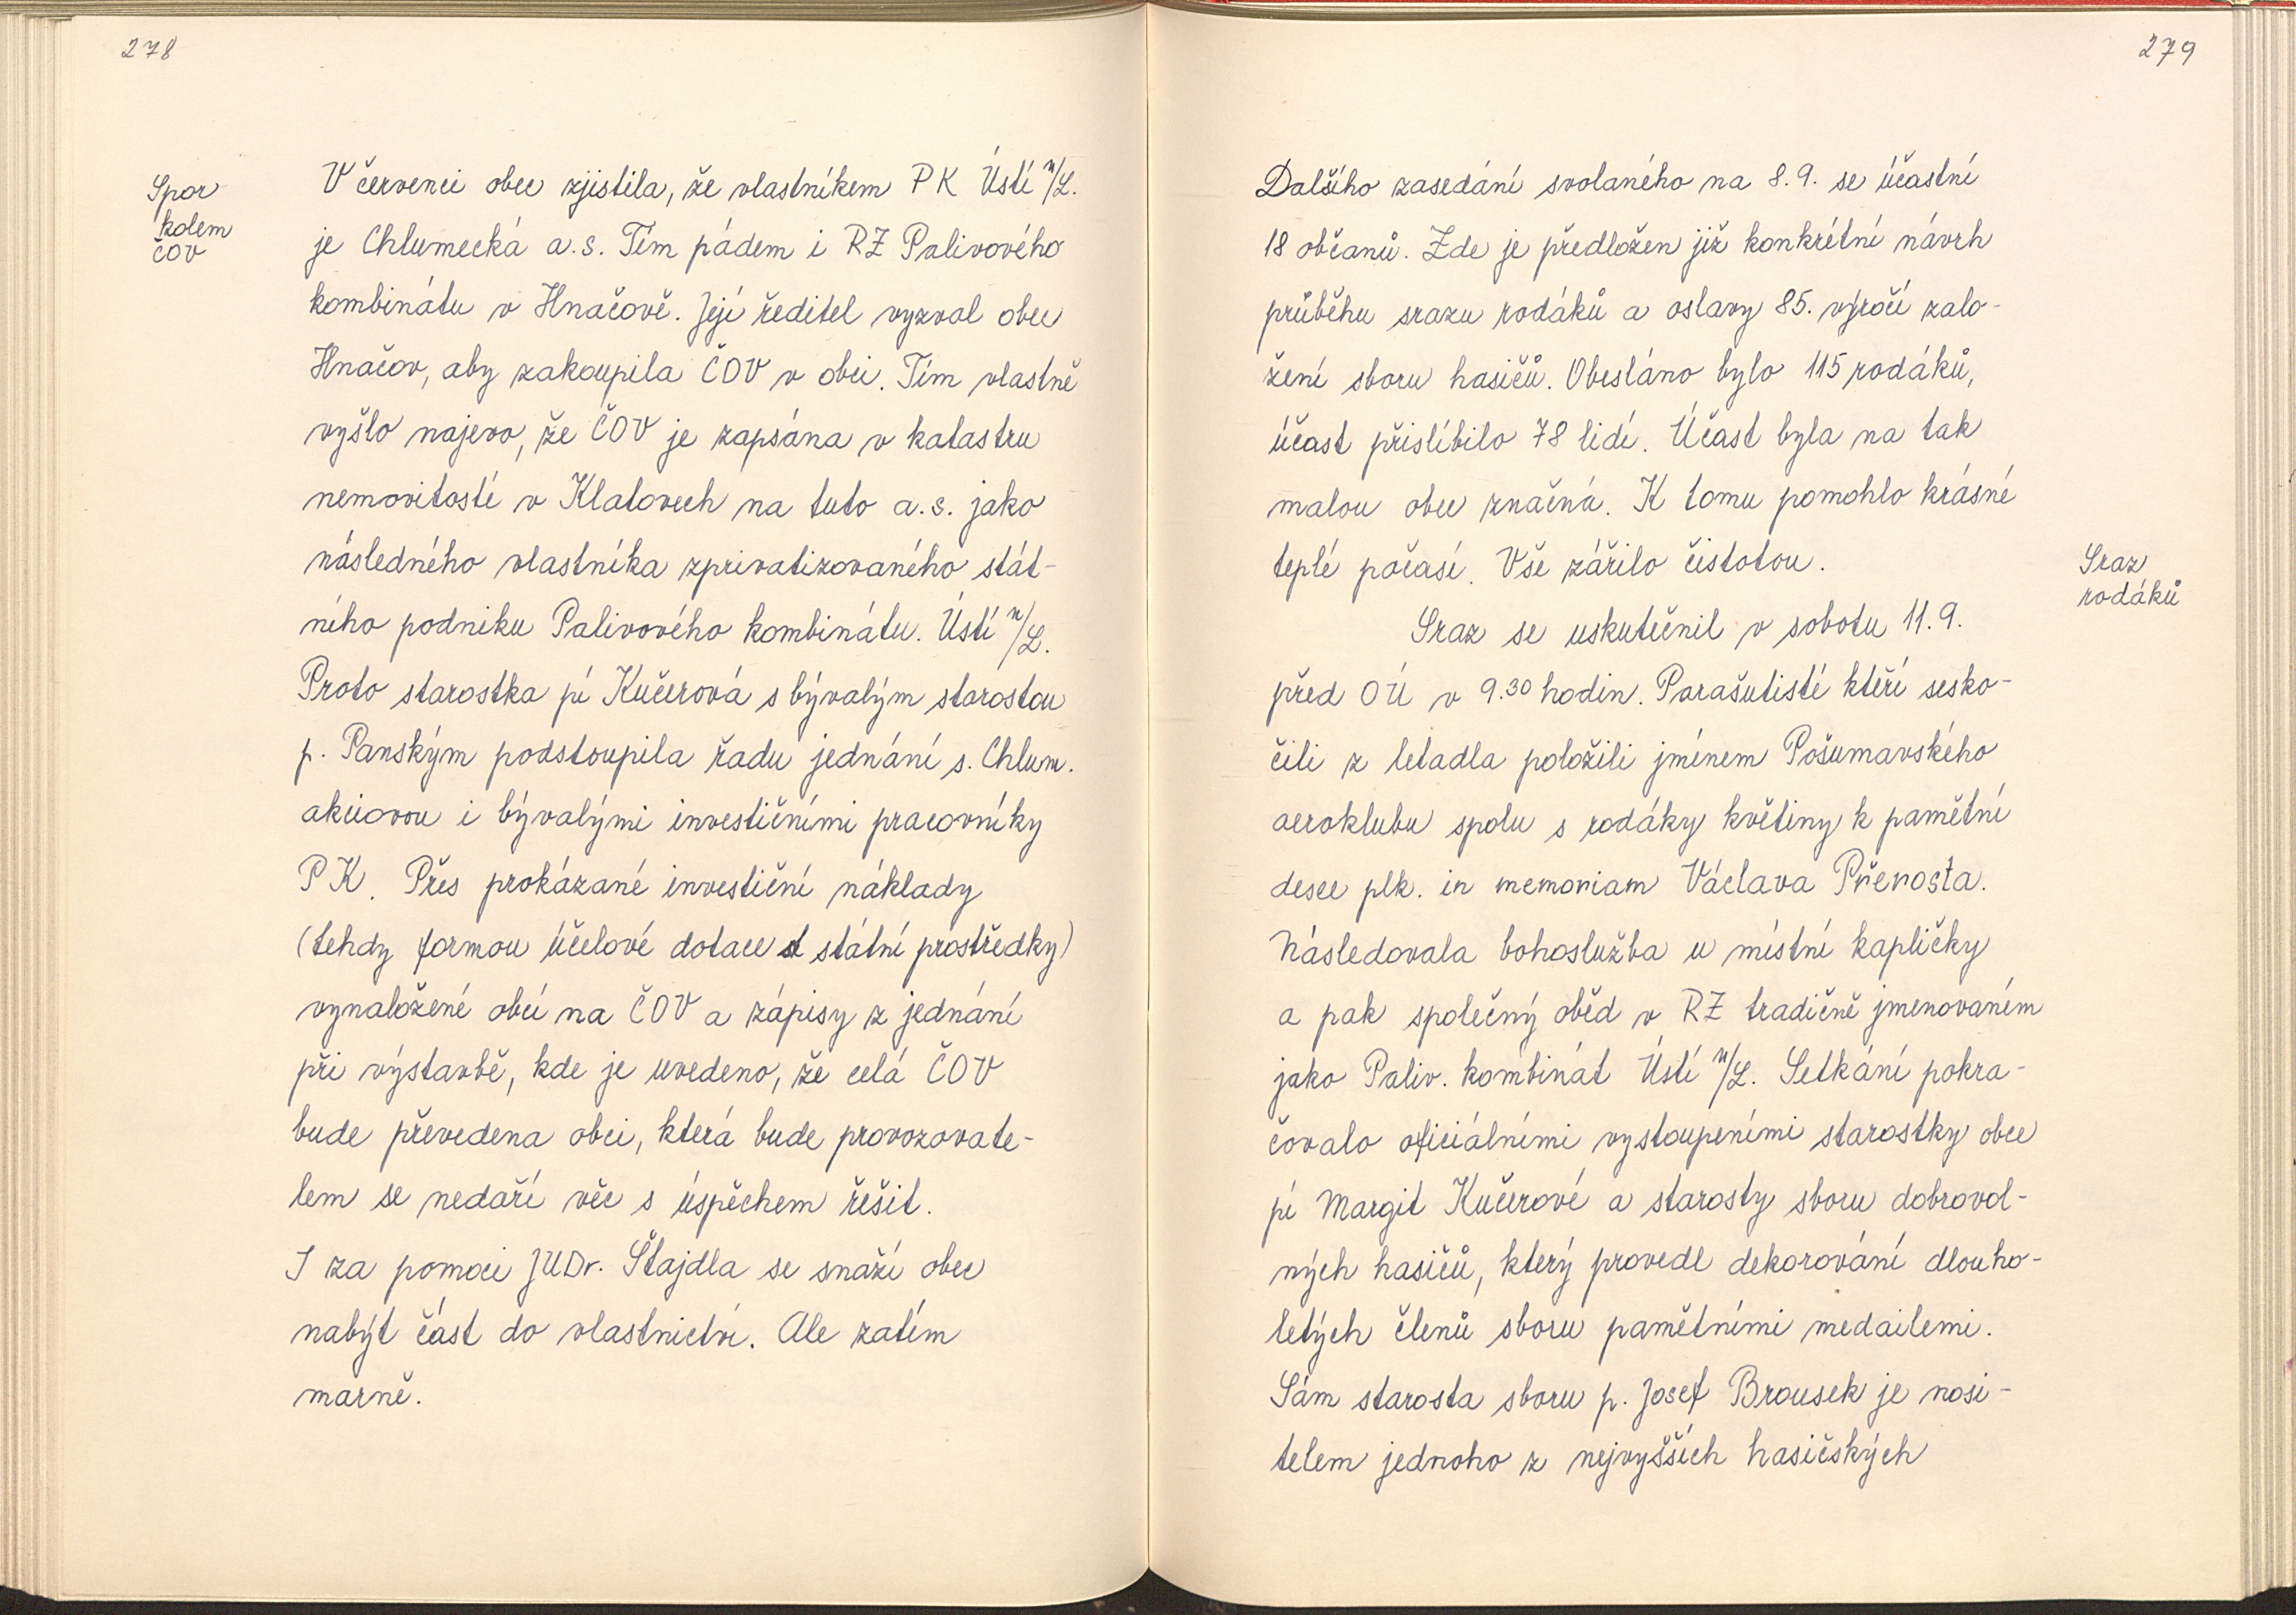 278
Spor
kolem
ČOV
V červenci obec zjistila, že vlastníkem PK Ústí n/L.
je Chlumecká a.s. Tím pádem i RZ Palivového
kombinátu v Hnačově. Její ředitel vyzval obec
Hnačov, aby zakoupila ČOV v obci. Tím vlastně
vyšlo najevo, že ČOV je zapsána v katastru
nemovitostí v Klatovech na tuto a.s. jako
následného vlastníka zprivatizovaného stát-
ního podniku Palivového kombinátu. Ústí n/L.
Proto starostka pí Kučerová s bývalým starostou
p. Panským podstoupila řadu jednání s. Chlum.
akciovou i bývalými investičními pracovníky
PK. Přes prokázané investiční náklady
(tehdy formou účelové dotace st státní prostředky)
vynaložené obcí na ČOV a zápisy z jednání
při výstavbě, kde je uvedeno, že celá ČOV
bude převedena obci, která bude provozovate-
lem se nedaří věc s úspěchem řešit.
I za pomoci JUDr. Štajdla se snaží obec
nabýt část do vlastnictví. Ale zatím
marně.
279
Dalšího zasedání svolaného na 8.9. se účastní
18 občanů. Zde je předložen již konkrétní návrh
průběhu srazu rodáků a oslavy 85. výročí zalo-
žení sboru hasičů. Obesláno bylo 115 rodáků,
účast přislíbilo 78 lidí. Účast byla na tak
malou obec značná. K tomu pomohlo krásné
teplé počasí. Vše zářilo čistotou.
Sraz
rodáků
Sraz se uskutečnil v sobotu 11.9.
před OÚ v 9.30 hodin. Parašutisté kteří sesko-
čili z letadla položili jménem Pošumavského
aeroklubu spolu s rodáky květiny k pamětní
desce plk. in memoriam Václava Přerosta.
Následovala bohoslužba u místní kapličky
a pak společný oběd v RZ tradičně jmenovaném
jako Paliv. kombinát Ústí n/L. Setkání pokra-
čovalo oficiálními vystoupeními starostky obce
pí Margit Kučerové a starosty sboru dobrovol-
ných hasičů, který provedl dekorování dlouho-
letých členů sboru pamětními medailemi.
Sám starosta sboru p. Josef Brousek je nosi-
telem jednoho z nejvyšších hasičských